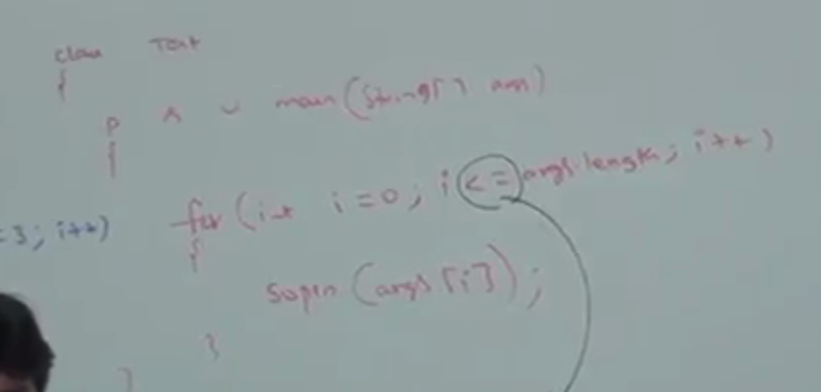 class Test
{
p s v main(String[] args)
{
for(int i=0; i<=args.length; i++)
=3; i++)
{
sopln(args[i]);
}
}